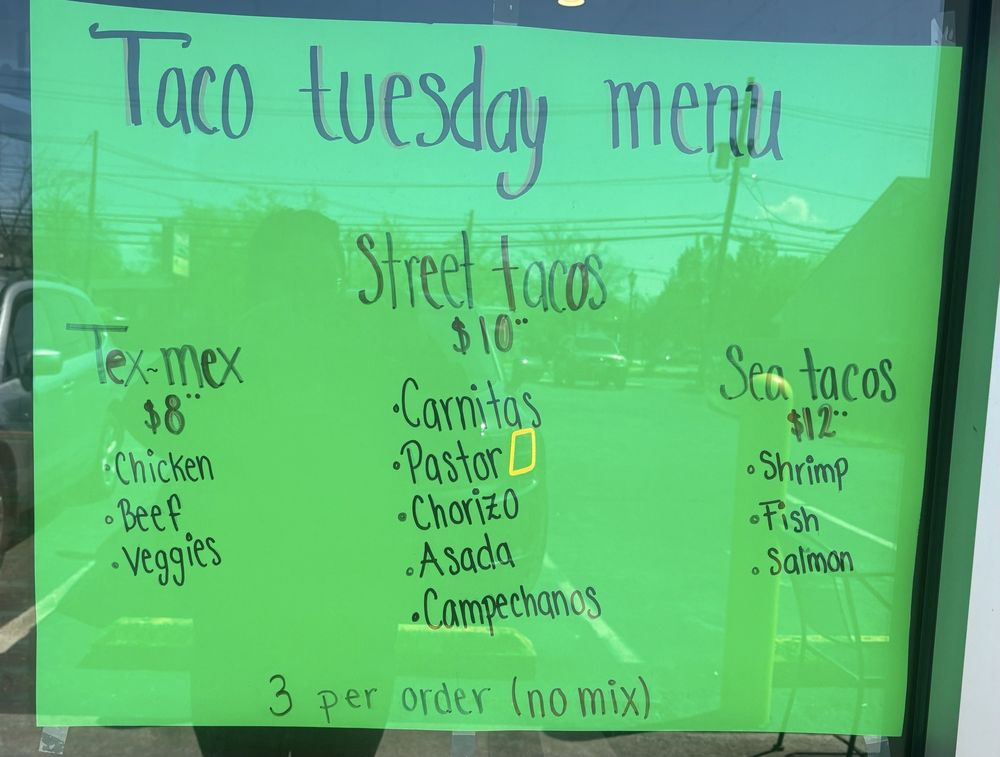 Taco tuesday menu
Street tacos
$10¨
Tex~mex
$8¨
•Chicken
•Beef
•Veggies
•Carnitas
•Pastor
•Chorizo
•Asada
•Campechanos
Sea tacos
$12¨
•Shrimp
•Fish
•Salmon
3 per order (no mix)